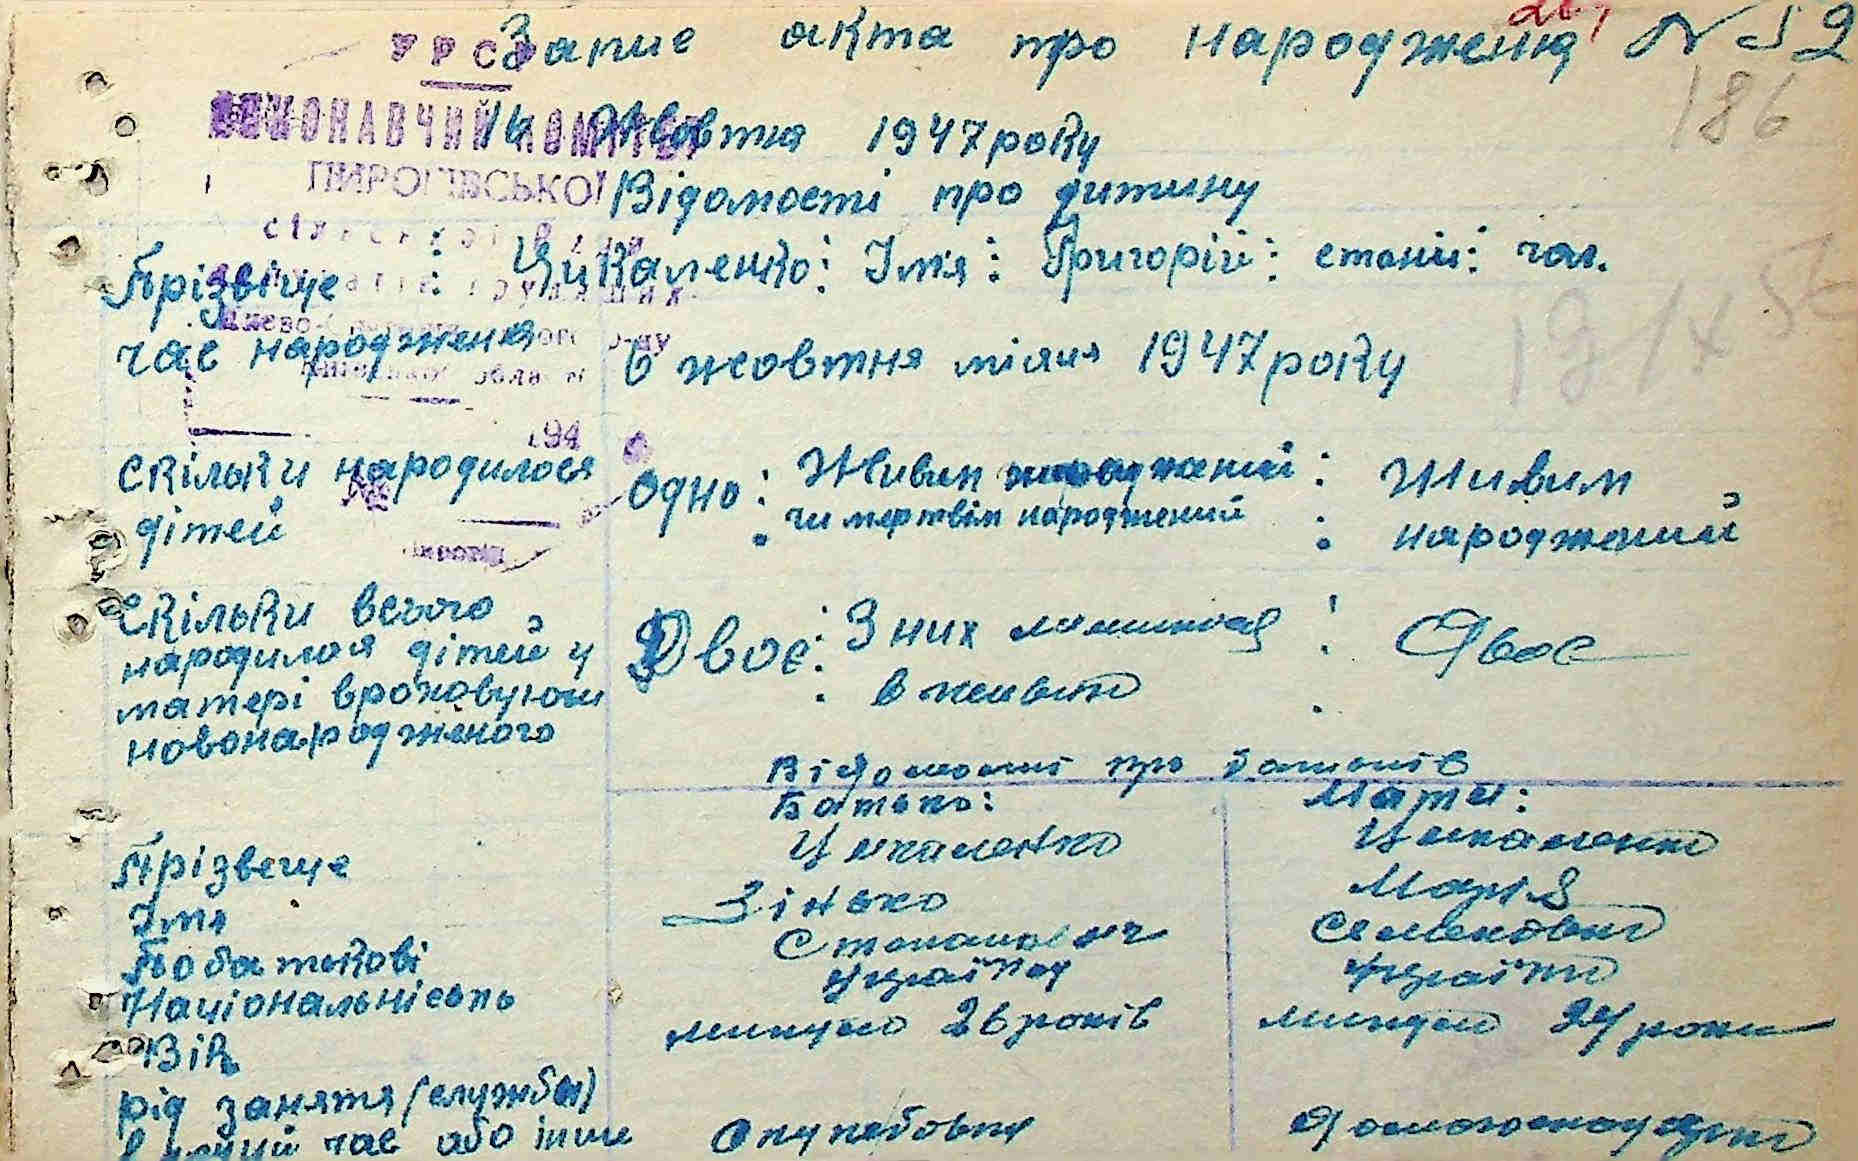 Запис акта про народження N 52
186
УРСР
ВИКОНАВЧИЙ КОМІТЕТ
16 Жовтня 1947 року
ПИРОГІВСЬКОЇ
Відомості про дитину
Прізвіще : Цикаленко : Імя : Григорій : стать : чол.
час народження 6 жовтня місяця 1947 року
194
Скільки народилося дітей
одно : Живим народжений чи мертвим народжений : Живим народжений
Скільки всього народилося дітей у матері враховуючи новонародженого
Двоє : З них лишилося в живих : Двоє
Відомості про батьків
Батько: Мати:
Прізвеще Цикаленко Цикаленко
Імя Зінько Марія
Побатькові Степанович Семеновна
Національність Українец Українка
Вік минуло 26 років минуло 24 роки
рід заняття (служби)
час або інше Домогосподарка